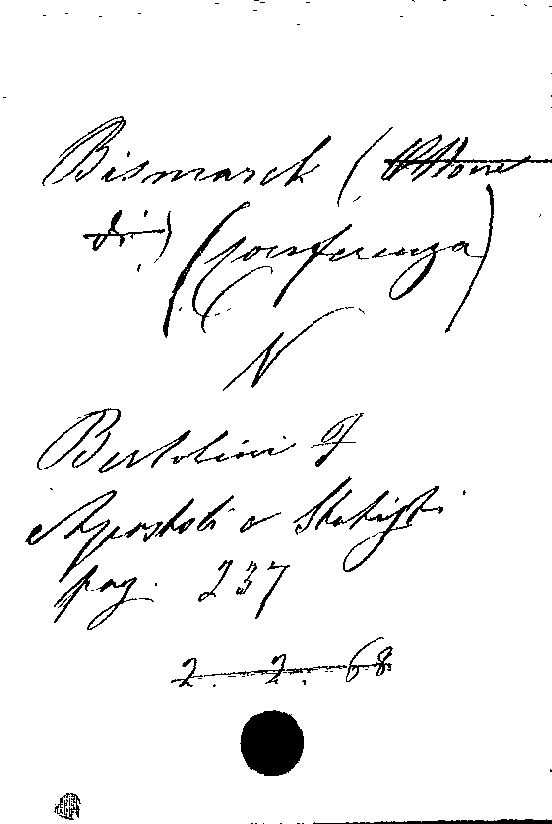 Bismarck (Ottone
di) (Conferenza)
N
Bertolini F
Apostoli e Statisti
pag. 237
2. 2. 68